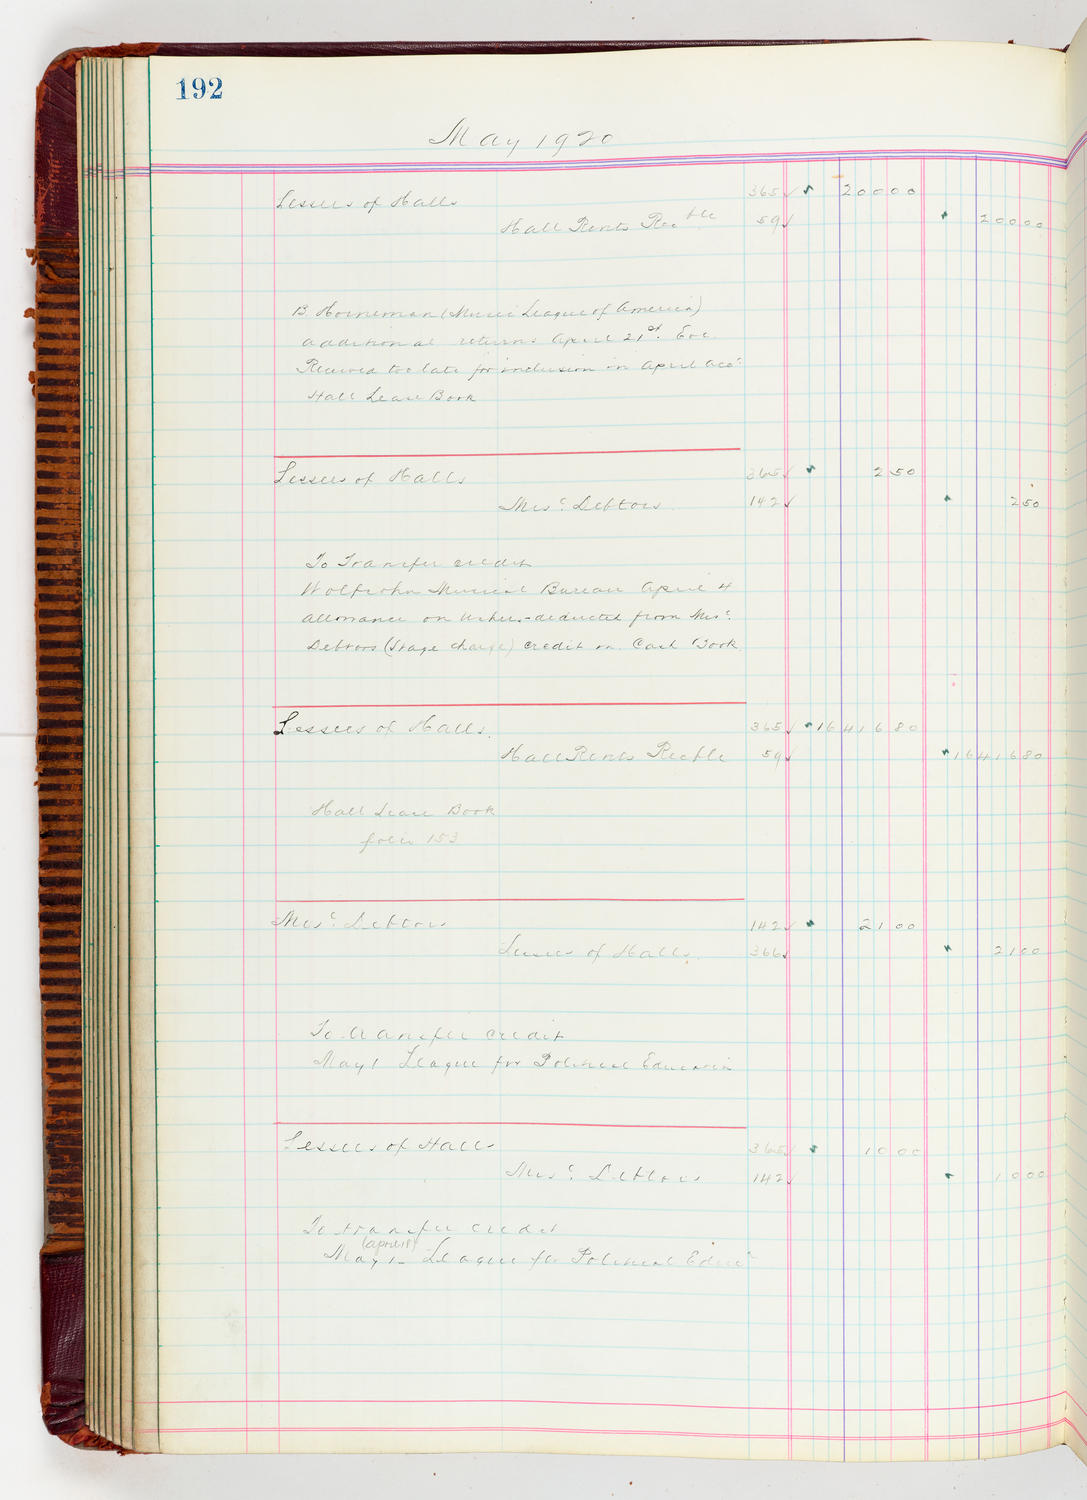 192
May 1920
Lessees of Halls 365 ✓ 20000
Hall Rents Rec^ble 59 ✓ 20000
B. Horneman (Music League of America)
additional returns April 21st Eve.
Received too late for inclusion in April acc^s
Hall Lease Book
Lessees of Halls 365 ✓ 250
Mis^c Debtors 142 ✓ 250
To Transfer credit
Wolfsohn Musical Bureau April 4
allowance on Ushers - deducted from Mis^c
Debtors (Stage charge) credit on Cash Book
Lessees of Halls 365 ✓ 1641680
Hall Rents Recble 59 ✓ 1641680
Hall Lease Book
folio 153
Mis^c Debtors 142 ✓ 2100
Lessees of Halls 366 ✓ 2100
To transfer credit
May 1 League for Political Education
Lessees of Halls 365 ✓ 1000
Mis^c Debtors 142 ✓ 1000
To transfer credit
(April 18)
May 1 - League for Political Educ^n